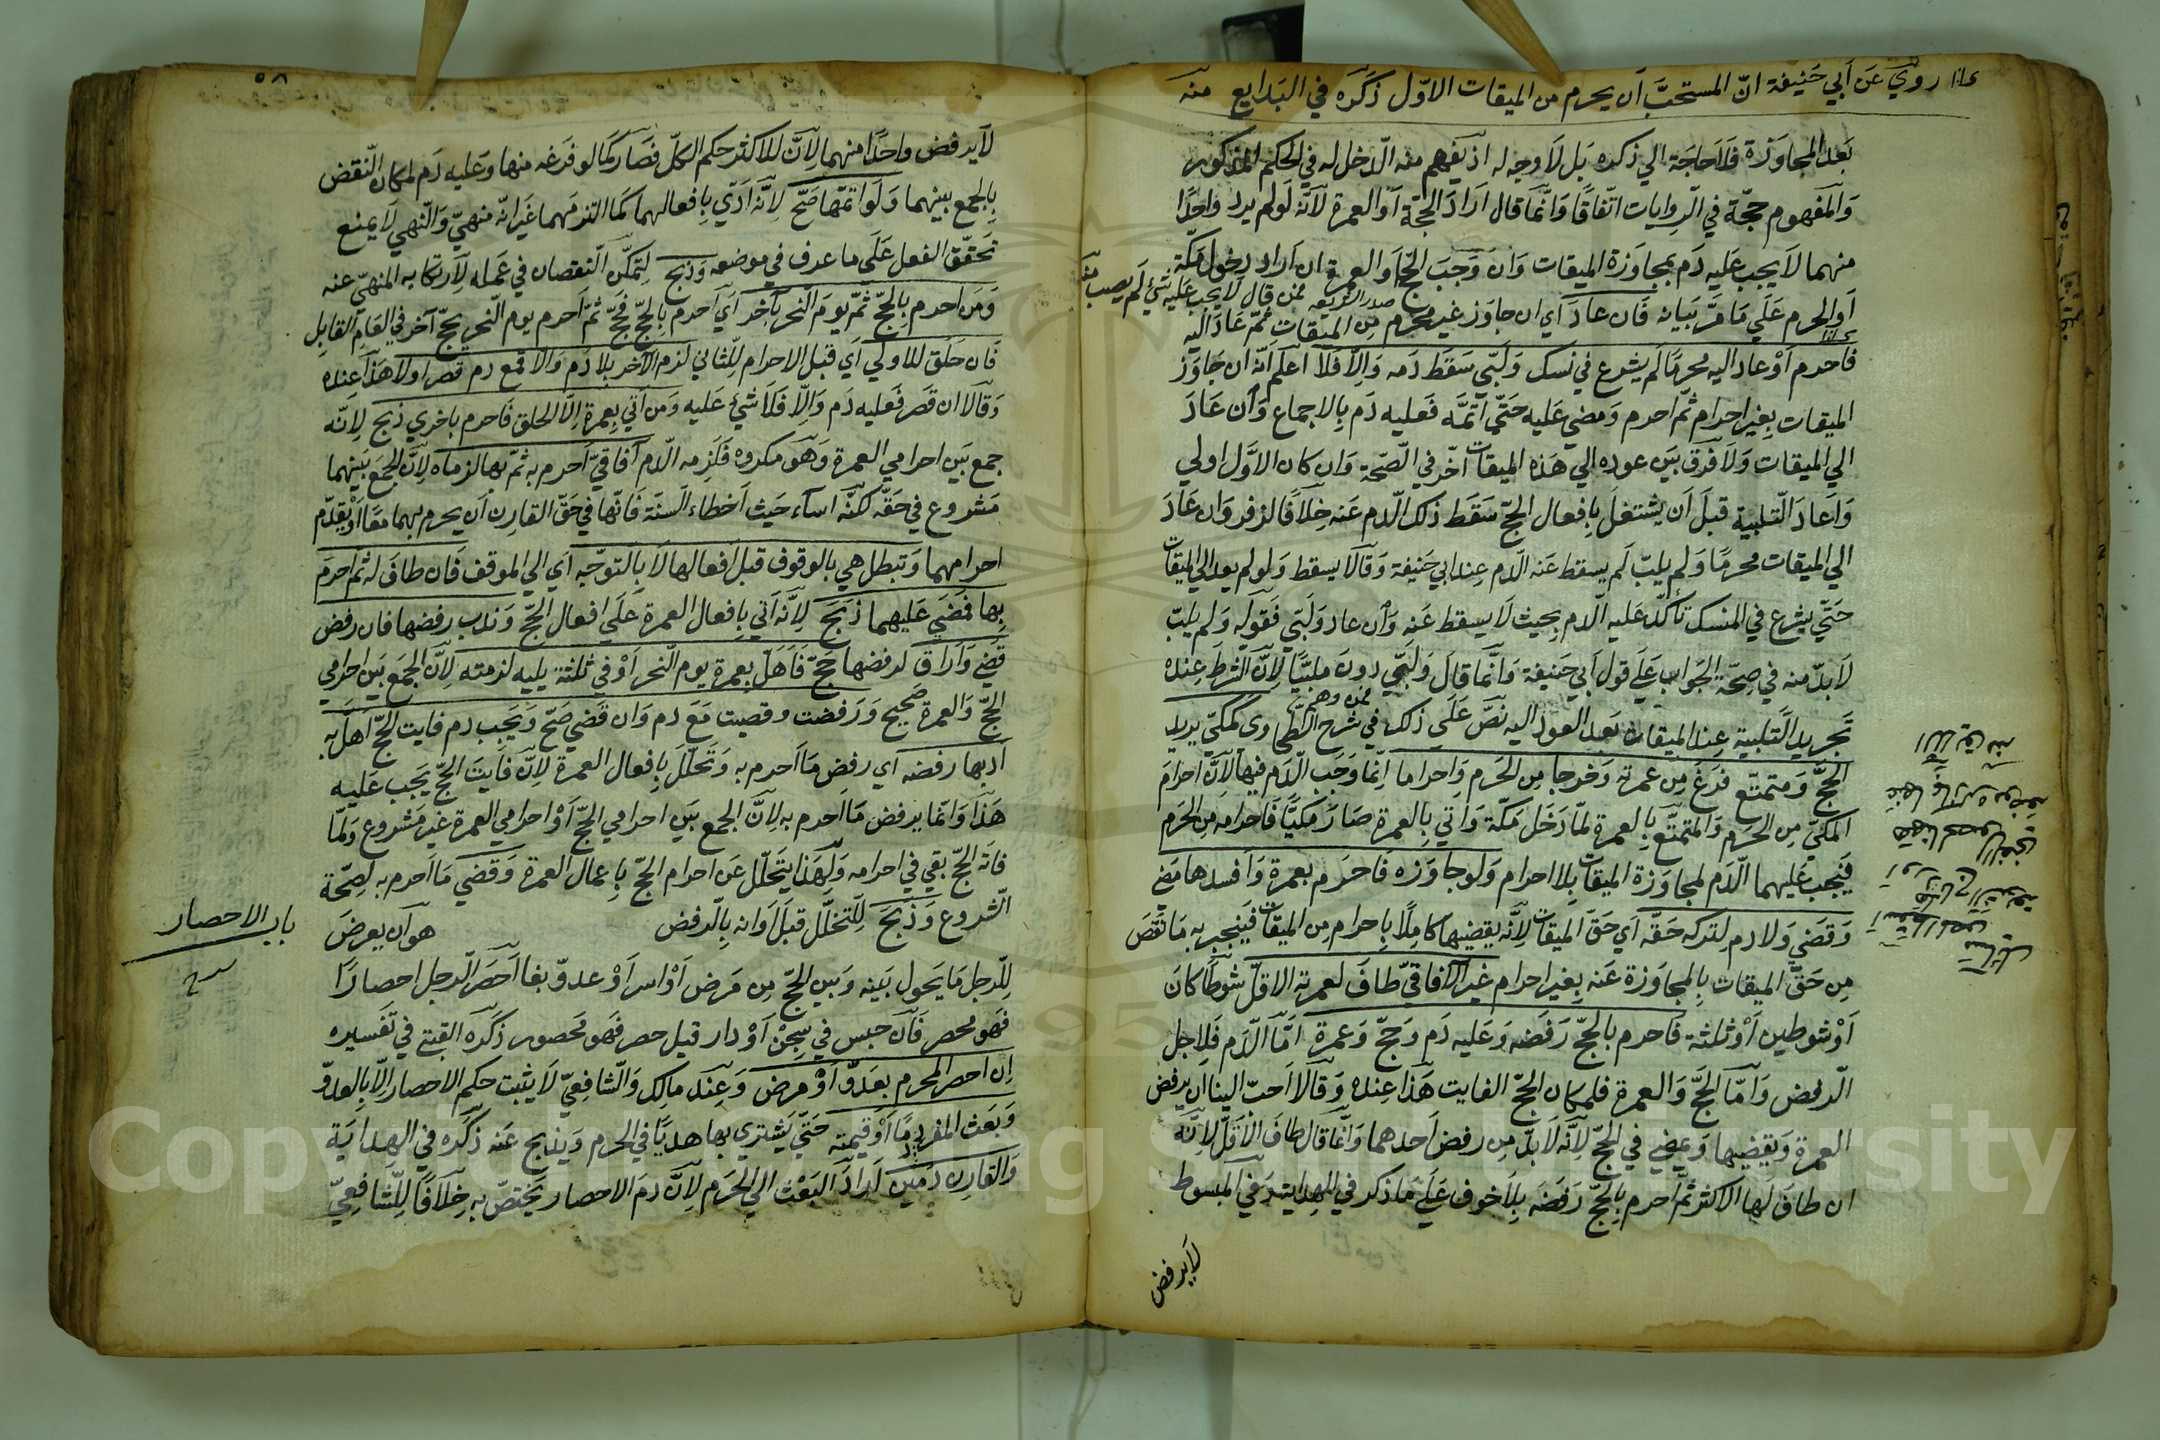 روي عن أبي حنيفة انّ المستحبّ أن يحرم من الميقات الاوّل ذكره في البدايع منه
بعد المجاوزة فلا حاجة الي ذكره بل لا وجه له اذ يفهم منه الّا دخل له في الحكم المذكور
والمفهوم حجّة في الروايات اتّفاقًا وانّما قال اراد الحجّة أو العمرة لانّه لو لم يرد واحدًا
منهما لا يجب عليه دم بمجاوزة الميقات وان وجب الحجّ أو العمرة ان اراد دخول مكّة
صدر الشريعة فمن قال لا يجب عليه شئ لم يصب منه
أو الحرم علي ما مرّ بيانه فان عاد أي ان جاوز غير محرم من الميقات ثمّ عاد اليه
فاحرم أو عاد اليه محرمًا لم يشرع في نسك ولبّي سقط دمه والّا فلا اعلم انّه ان جاوز
الميقات بغير احرام ثمّ احرم ومضي عليه حتّي اتمّه فعليه دم بالاجماع وأن عاد
الي الميقات ولا فرق بين عوده الي هذه الميقات اخّر في الصّحة وان كان الاوّل اولي
واعاد التّلبية قبل أن يشتغل بافعال الحجّ سقط ذلك الدّم عنه خلافًا لزفر وان عاد
الي الميقات محرمًا ولم يلبّ لم يسقط عنه الدّم عند ابي حنيفة وقالا يسقط ولو لم يعد الي الميقات
حتّي يشرع في المنسك تأكّد عليه الدم بحيث لا يسقط عنه وأن عاد ولبّي فقوله ولم يلبّ
لابدّ منه في صحّة الجواب علي قول ابي حنيفة وانّما قال ولبّي دون ملبّيًا لانّ الشّرط عنده
تجريد التّلبية عند الميقات بعد العود اليه نصّ علي ذلك في شرح الطّحاوي كمكيّ يريد
الحجّ ومتمتّع فرغ من عمرته وخرجا من الحرم واحراما انّما وجب الدّم فيها لانّ احرام
المكيّ من الحرم والمتمتّع بالعمرة لمّا دخل مكّة واتي بالعمرة صار مكيّا فاحرامه من الحرم
فيجب عليهما الدّم لمجاوزة الميقات بلا احرام ولو جاوزه فاحرم بعمرة وافسدها مضي
وقضي ولا دم لتركه حقّه أي حقّ الميقات لانّه يقضيها كاملًا باحرام من الميقات فينجبر به ما نقص
من حقّ الميقات بالمجاوزة عنه بغير احرام غير الآفاقيّ طاف لعمرته الاقلّ شوطًا كان
أو شوطين أو ثلثة فاحرم بالحجّ رفضه وعليه دم وحجّ وعمرة امّا الدّم فلاجل
الرفض وامّا الحجّ والعمرة فلمكان الحجّ الفايت هذا عنده وقالا احبّ الينا ان يرفض
العمرة ويقضيها ويمضي في الحجّ لانّه لابدّ من رفض احدهما وانّما قال طاف الاقلّ لانّه
ان طاف لها الاكثر ثمّ احرم بالحجّ رفضه بلا خوف علي ما ذكر في الهداية وفي المبسوط
لا يرفض
٥٨
لا يرفض واحدًا منهما لانّ للاكثر حكم الكلّ فصار كما لو فرغ منها وعليه دم لمكان النّقض
بالجمع بينهما ولو اتمّها صحّ لانّه ادّي بافعالهما كما التزمهما غير انّه منهيّ والنّهي لا يمنع
تحقّق الفعل علي ما عرف في موضعه وذبح لتمكّن النّقصان في عمله لارتكابه المنهيّ عنه
ومن احرم بالحجّ ثمّ يوم النّحر باخر أي احرم بالحجّ فحجّ ثمّ احرم يوم النّحر بحجّ آخر في العام القابل
فان حلق للاولي أي قبل الاحرام للثّاني لزم الآخر بلا دم والّا فمع دم قصر اولا هذا عنده
وقالا ان قصر فعليه دم والّا فلا شئ عليه ومن اتي بعمرة الّا الحلق فاحرم باخري ذبح لانّه
جمع بين احرامي العمرة وهو مكروه فلزمه الدّم آفاقيّ احرم به ثمّ بها لزماه لانّ الجمع بينهما
مشروع في حقّه لكنّه اساء حيث اخطاء السنّة فانّها في حقّ القارن أن يحرم بهما معًا أو يقدّم
احرامهما وتبطل هي بالوقوف قبل افعالها لا بالتوجّه أي الي الموقف فان طاف له ثمّ احرم
بها فمضي عليهما ذبح لانّه اتي بافعال العمرة علي افعال الحجّ وندب رفضها فان رفض
قضي واراق لرفضها حجّ فاهلّ بعمرة يوم النّحر أو في ثلثة يليه لزمته لانّ الجمع بين احرامي
الحجّ والعمرة صحيح ورفضت وقصيت مع دم وان قضي صحّ ويجب دم فايت الحجّ اهلّ به
أو بها رفضه أي رفض ما احرم به وتحلّل بافعال العمرة لانّه فايت الحجّ يجب عليه
هذا وانّما يرفض ما احرم به لانّ الجمع بين احرامي الحجّ أو احرامي العمرة غير مشروع ولمّا
فاته الحجّ بقي في احرامه ولهذا يتحلّل عن احرام الحجّ باعمال العمرة وقضي ما احرم به لصحّة
الشّروع وذبح للتحلّل قبل اوانه بالرفض هو أن يعرض
باب الاحصار
للرجل ما يحول بينه وبين الحجّ من مرض أو اسر أو عدوّ يقال احصر الرجل احصارًا
فهو محصر فان حبس في سجن أو دار قيل حصر فهو محصور ذكره القتبي في تفسيره
ان احصر المحرم بعدوّ أو مرض وعند مالك والشّافعيّ لا يثبت حكم الاحصار الّا بالعدوّ
وبعث المفرد دمًا أو قيمته حتّي يشتري بها هديًا في الحرم ويذبح عنه ذكره في الهداية
والقارن دمين اراد البعث الي الحرم لانّ دم الاحصار يختصّ به خلافًا للشّافعيّ
Copyright © King Saud University